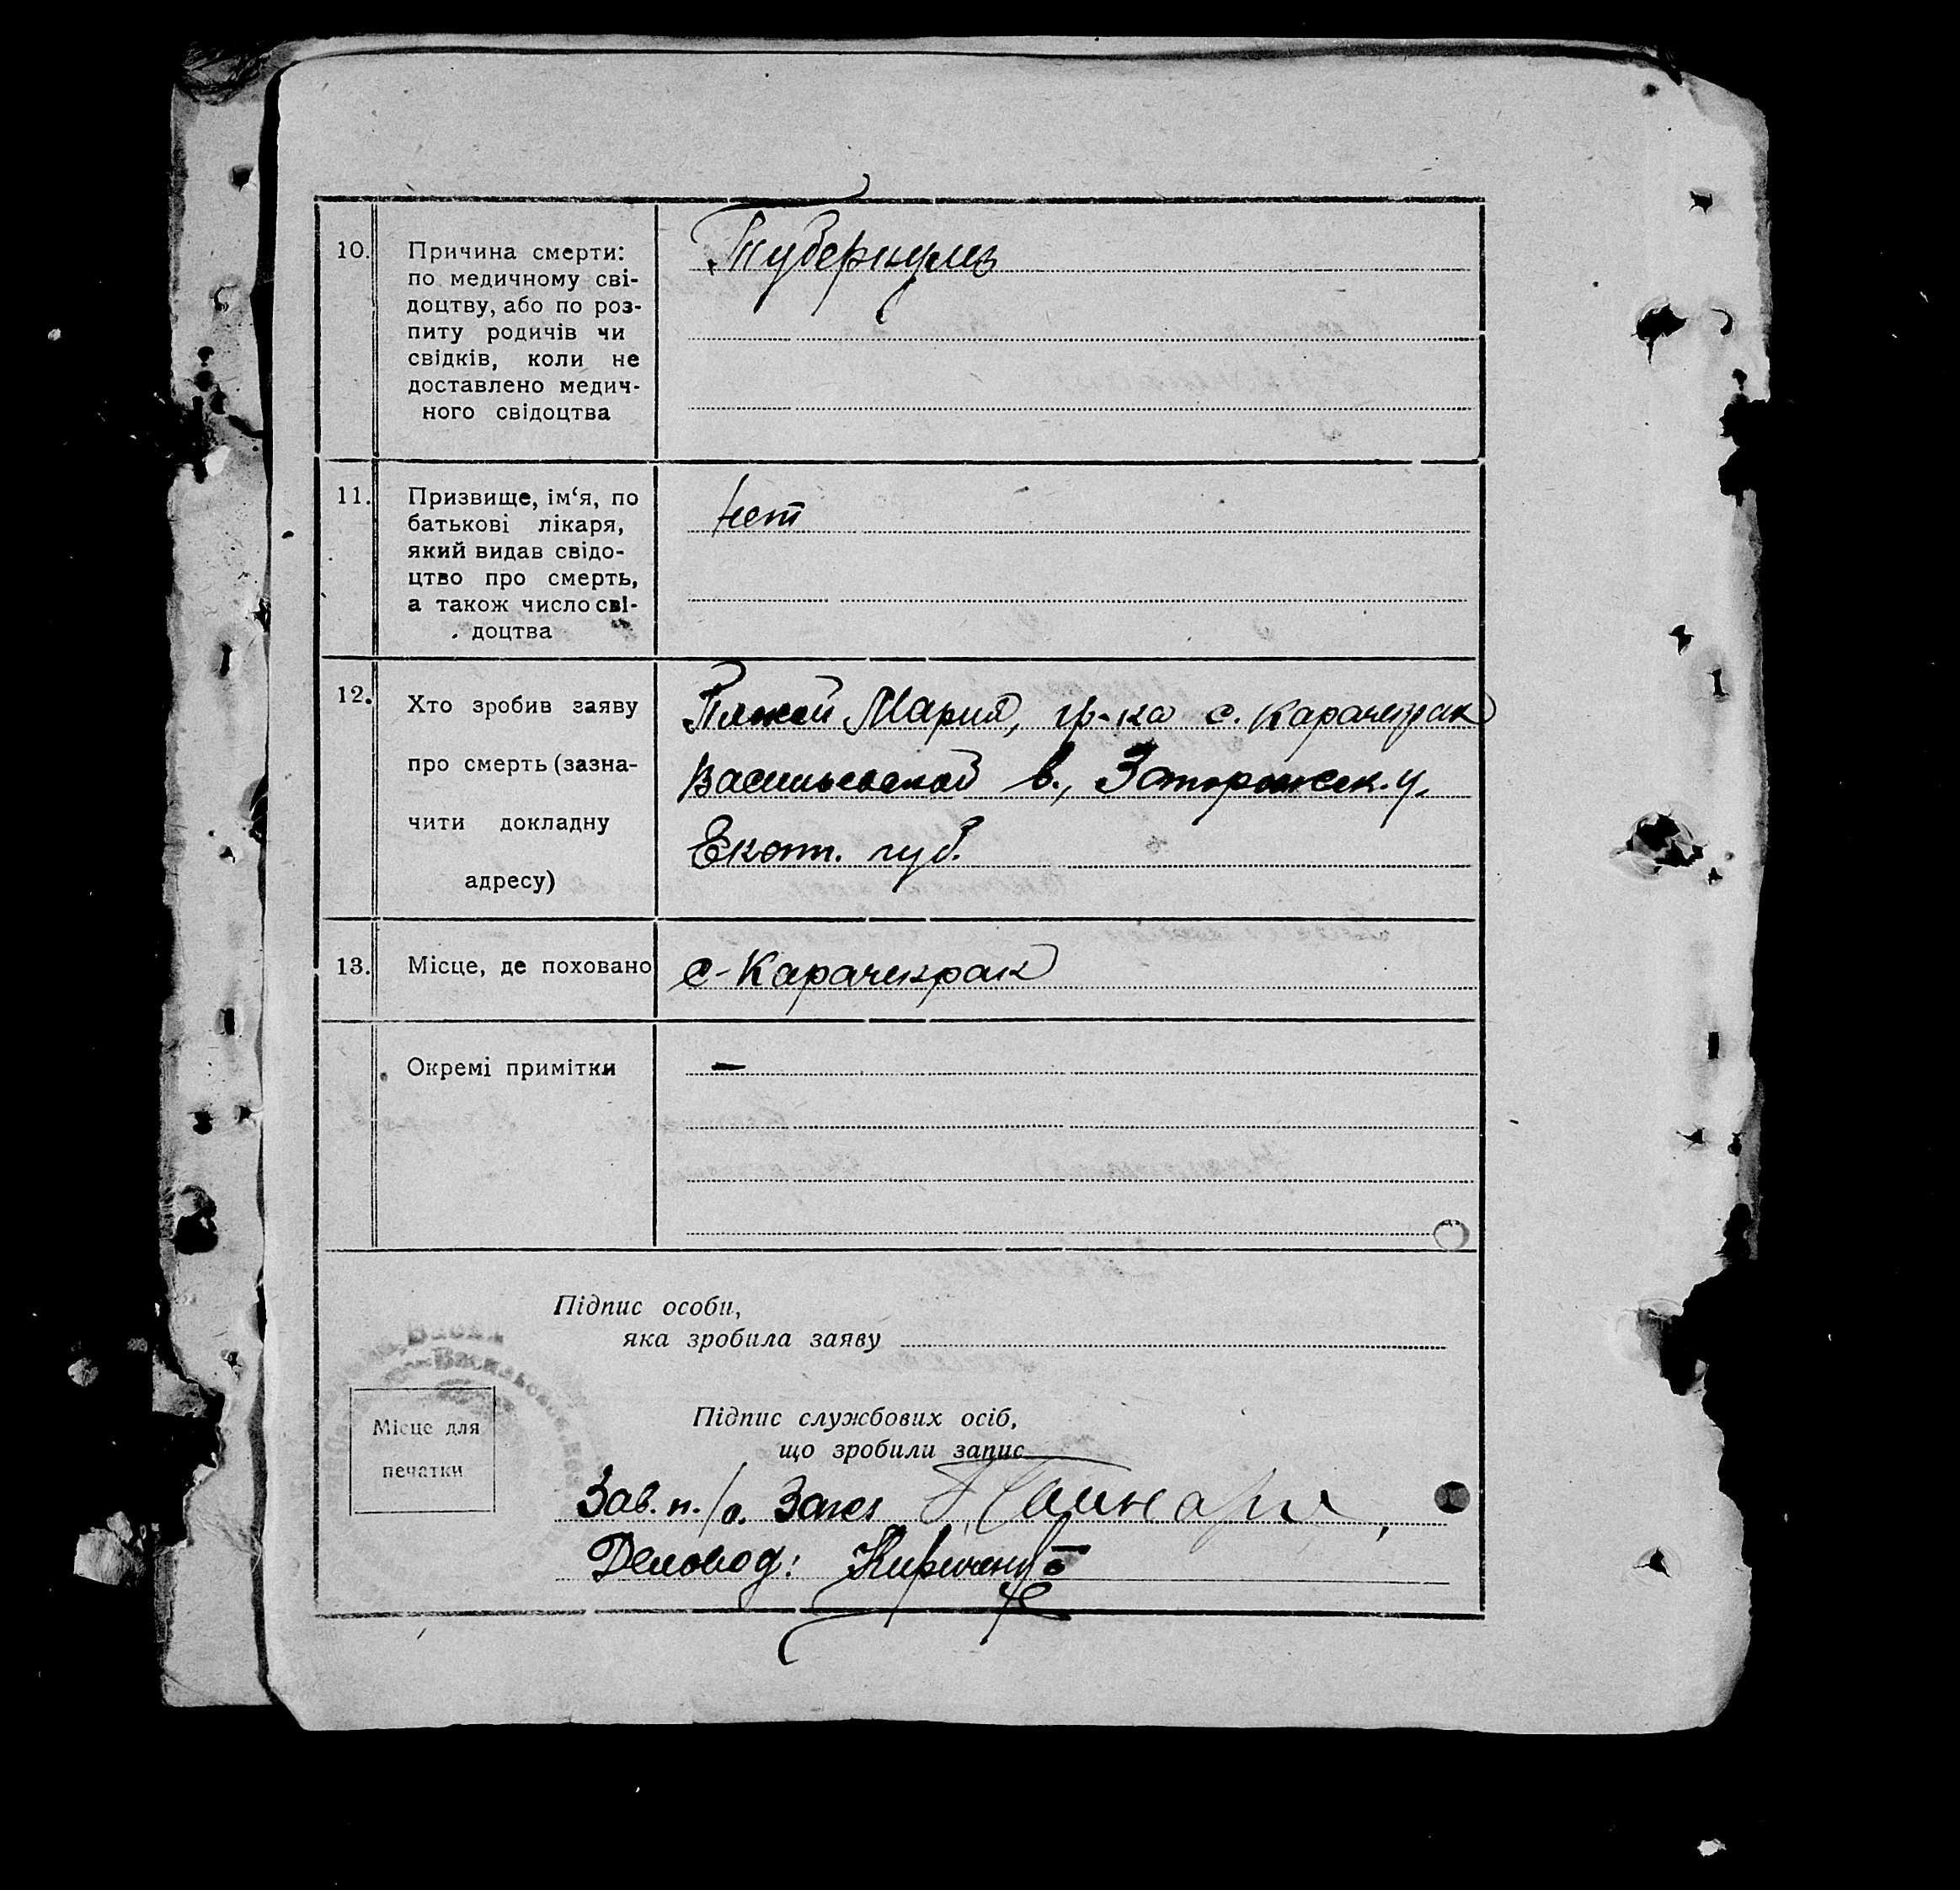 10. Причина смерти:
по медичному сві-
доцтву, або по роз-
питу родичів чи
свідків, коли не
доставлено медич-
ного свідоцтва
Туберкулез
11. Призвище, ім‘я, по
батькові лікаря,
який видав свідо-
цтво про смерть,
а також число сві-
доцтва
нет
12. Хто зробив заяву
про смерть (зазна-
чити докладну
адресу)
Мария, гр-ка с. Карачекрак
Васильевской в., Запорожск. у.
Екат. губ.
13. Місце, де поховано
с-Карачекрак
Окремі примітки
—
Підпис особи,
яка зробила заяву
Місце для
печатки
Підпис службових осіб,
що зробили запис
Зав. п./о. Загс
Деловод: